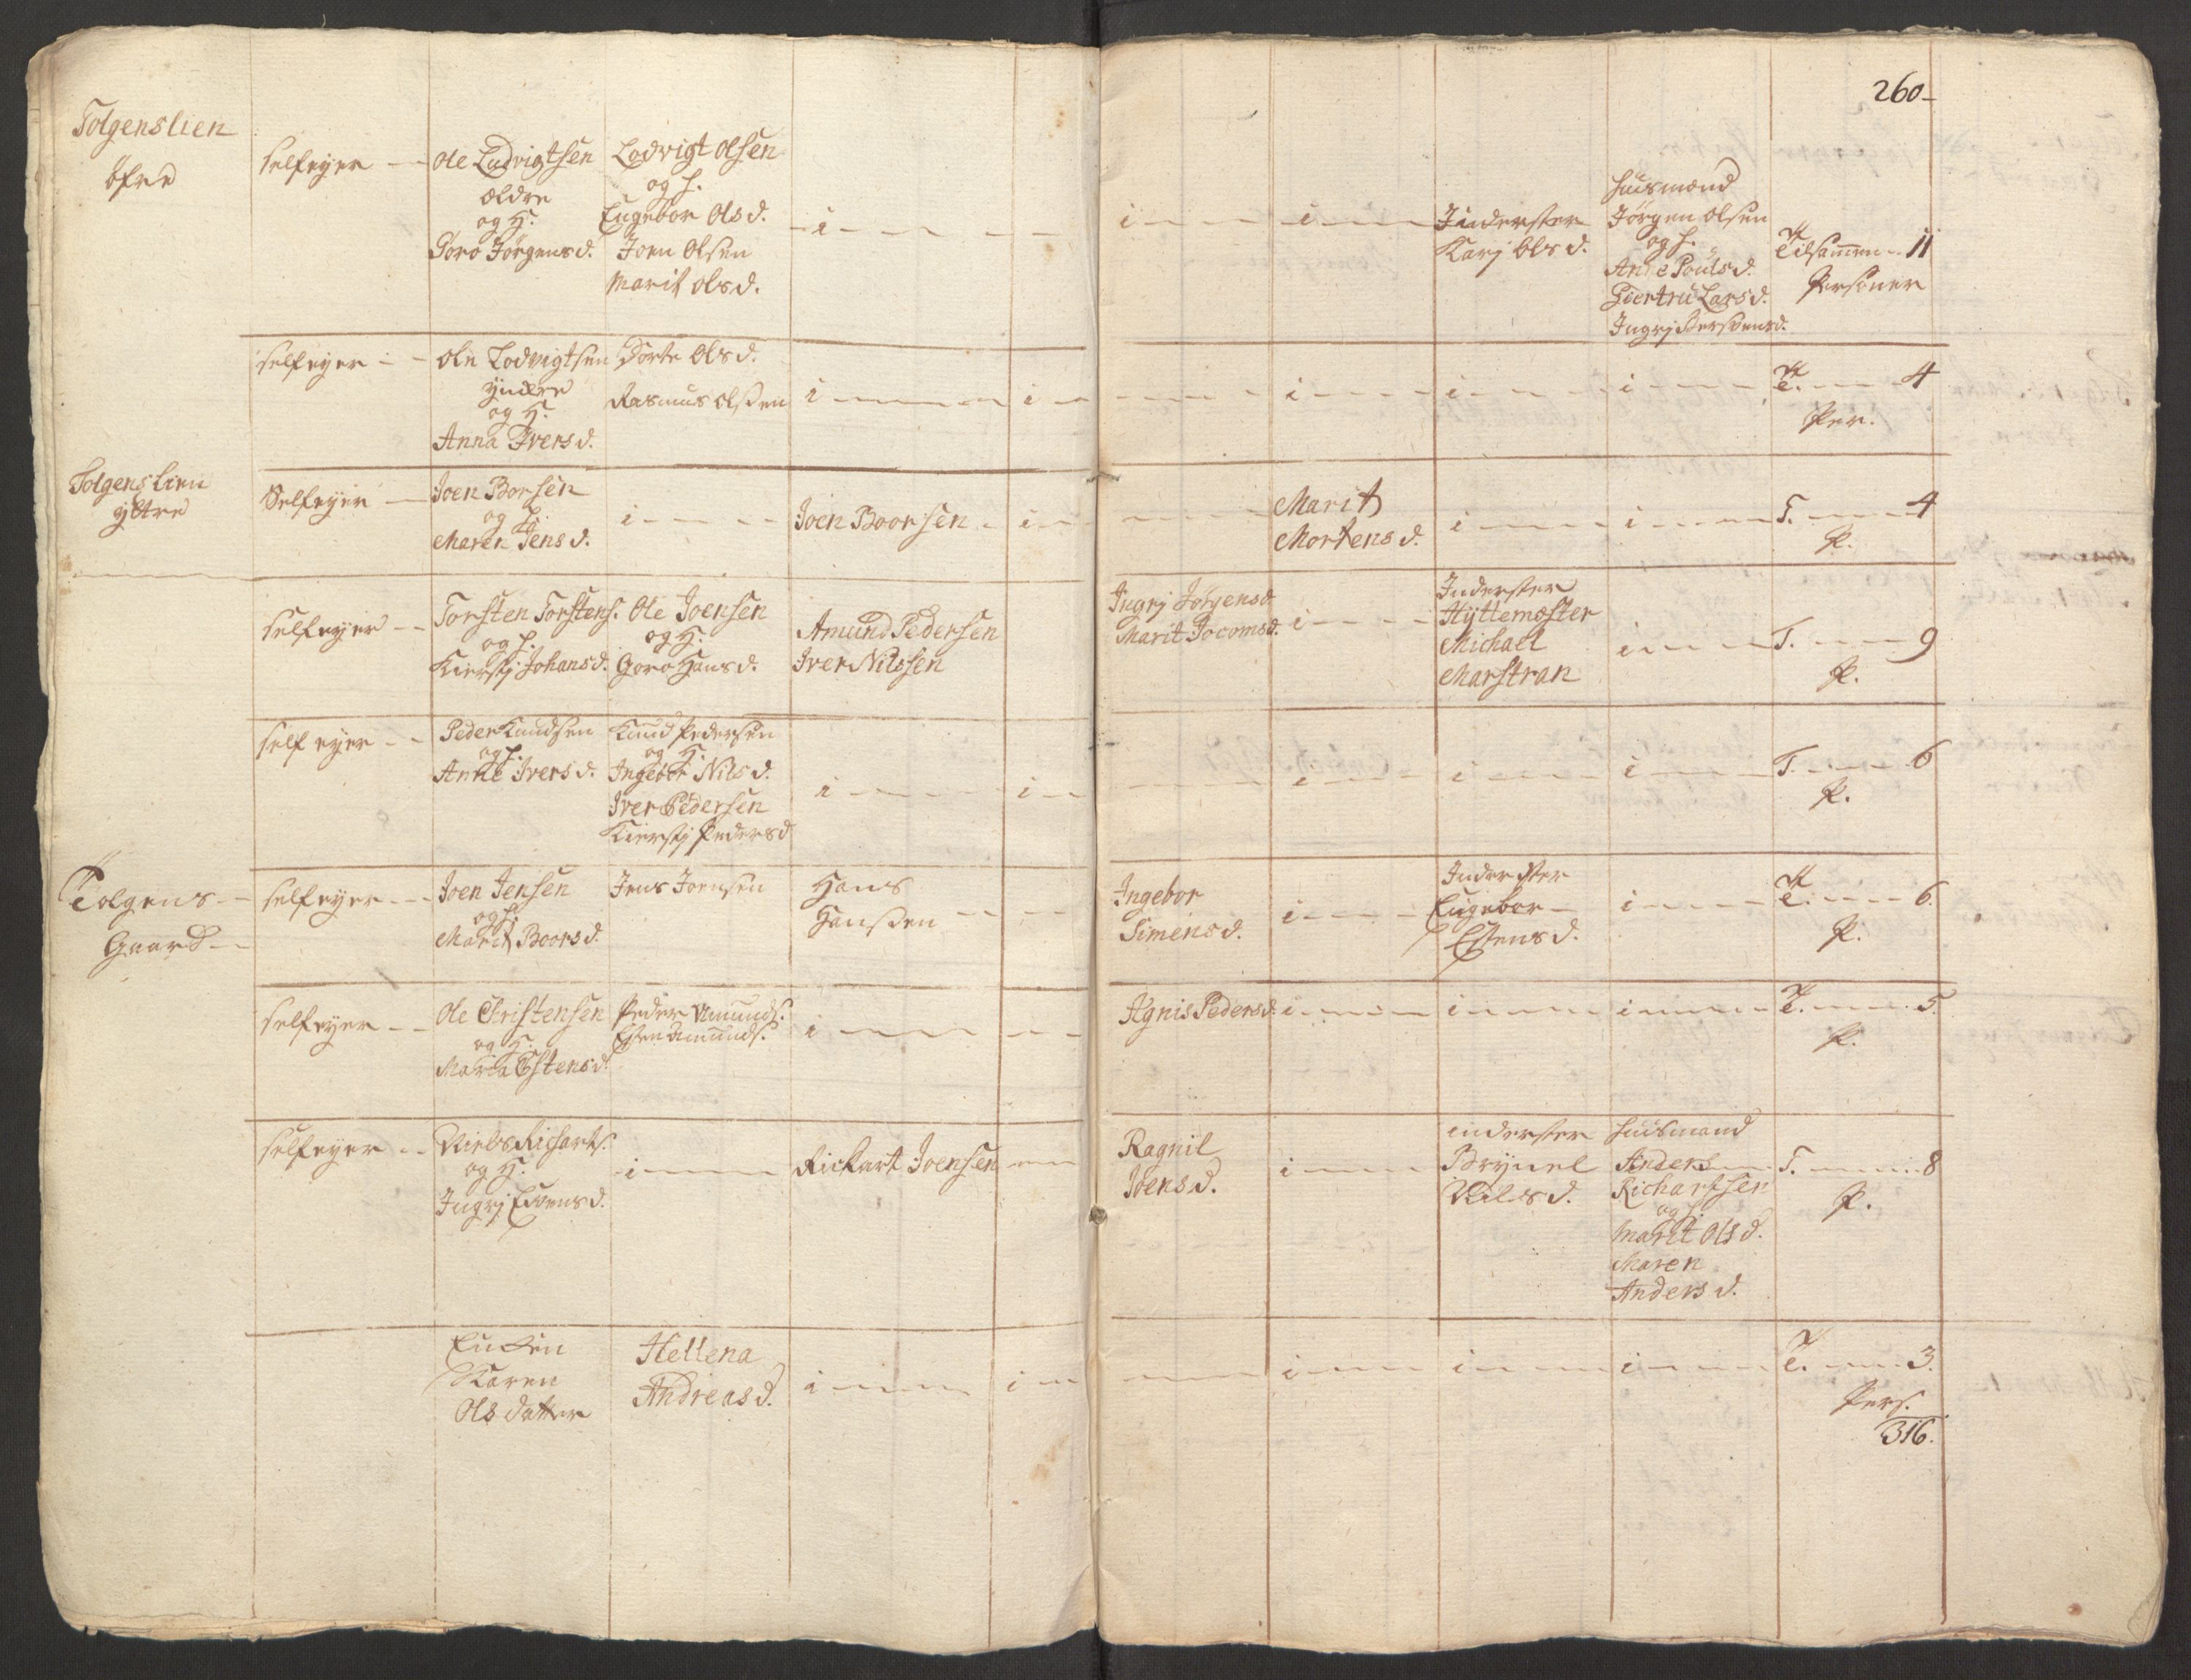 260
Tolgenslien
öfre
selfeyer
Ole Ludvigtsen
ældre
og H.
Goro Jörgensd.
Lodvigt olsen
og H.
Engebor Olsd.
Joen Olsen
Marit olsd.
i
i
i
Inderster
Karj Olsd.
Huusmænd
Jörgen Olsen
og H.
Anne Poulsd.
Giertru Larsd.
Ingrj
Tilsammen 11
Personer
selfeyer
Ole Lodvigtsen
yndere
og H.
Anna Iversd.
Dorte Olsd.
Rasmus olsen
i
i
i
i
i
T. 4
Per.
Tolgenslien
ÿttre
Selfeyer
Joen Borsen
og H.
Maren Jensd.
i
Joen Boorsen
i
Marit
Mortensd.
i
i
T. 4
P.
selfeyer
Torsten Torstens.
og H.
Kierstj Johansd.
Ole Joensen
og H.
Goro Hansd.
Amund Pedersen
Iver Nilssen
Ingrj Jörgensd.
Marit Jocomsd.
i
Inderster
Hÿttemester
Michael
Marstran
i
T. 9
P.
self eyer
Peder Knudsen
og H.
Anne Iversd.
Knud Pedersen
og H.
Ingebor Nilsd.
Iver Pedersen
Kierstj Pedersd
i
i
i
i
i
T. 6
P.
Tolgens
Gaard
selfeyer
Joen Jensen
og H.
Marit Boorsd.
Jens Joensen
Hans
Hansen
Ingebor
Simensd.
i
Inderster
Engebor
Estensd.
i
T. 6.
P.
selfeyer
Ole Christensen
og H.
Marta Estensd.
Peder Amunds.
Esten Amunds.
i
Agnis Pedersd.
i
i
i
T. 5.
P.
selfeyer
Niels Richarts.
og H.
Ingrj Evensd.
i
Rickart Joensen
Ragnil
Joensd.
i
inderster
Brynel
Nilsd.
Huusmand
Anders
Richartsen
og H.
Marit Olsd.
Maren
Andersd.
T. 8
P.
Encken
Karen
Olsdatter
Hellena
Andreasd.
i
i
i
i
i
T. 3.
Pers.
316.